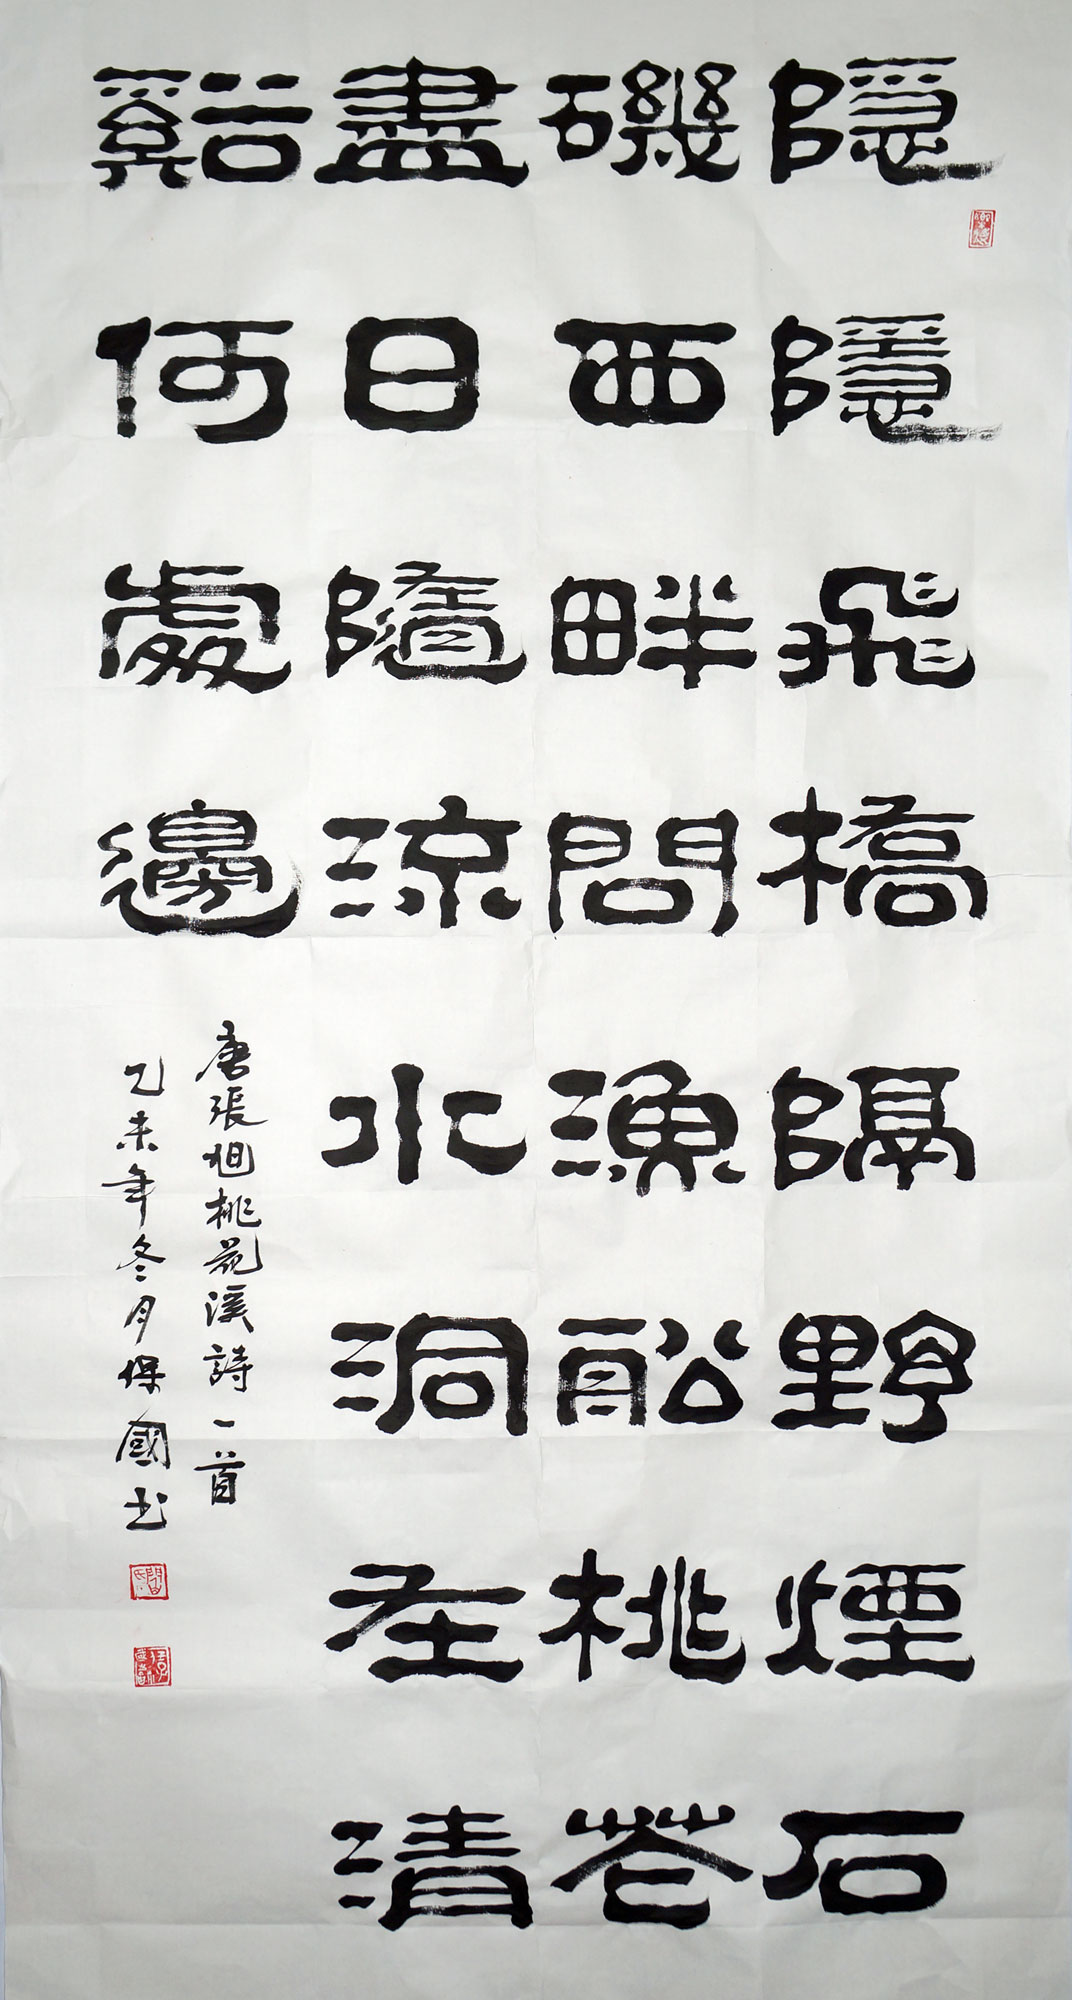 隱隱飛橋隔野煙石
磯西畔問漁船桃花
盡日隨流水洞在清
谿何處邊
唐張旭桃花溪詩一首
乙未年冬月保國书